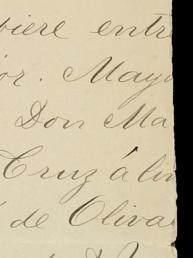 biere entre
or. Mayo
Don Ma
Cruz á lin
de Oliva